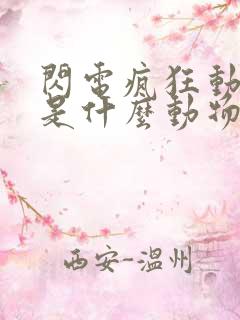 閃電瘋狂動
是什麼動物
西安-溫州